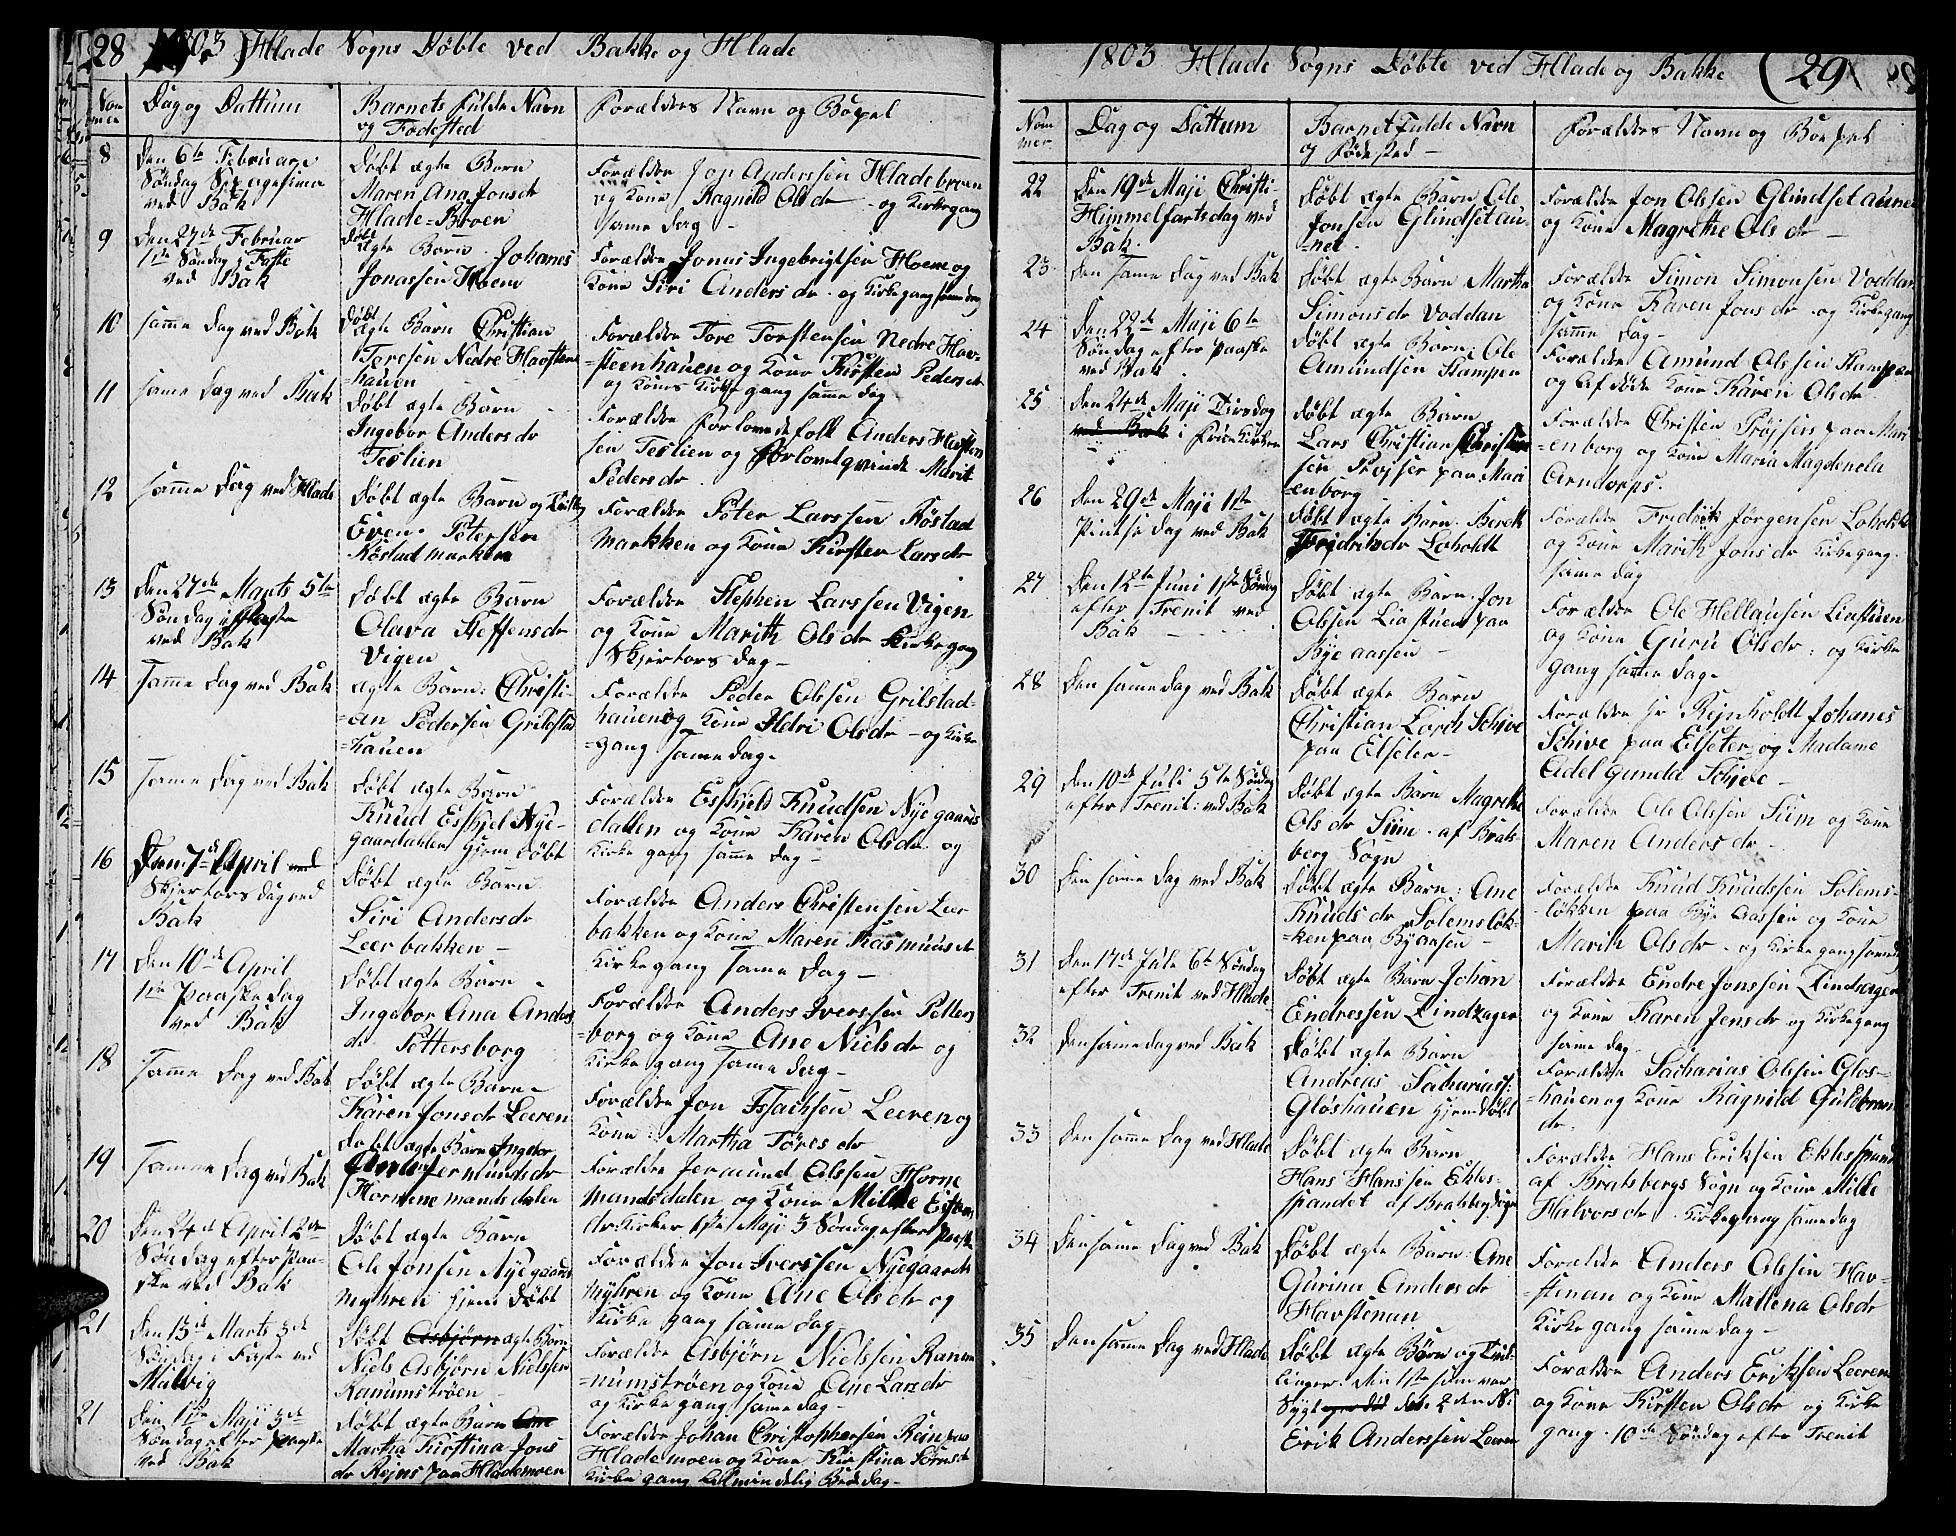 28 1803 Hlade Sogns Døbte ved Bakke og Hlade
Dag og Dattum
Barnets fulde Navn
og Fødested
Forældres Navn og Bopæl
8
Den 6te Februarii
Søndag Sexagesima
ved Bak
Døbt ægte Barn
Maren Ana Jonsdr
Hlade=Broen
Forældre Jon Anderssen Hladebroen
og Kone Ragnild Olsdr og Kirkegang
samme dag
9
Den 27de Februar
1ste Søndag i Faste
ved Bak
Døbt
ægte Barn Johanes
Jonassen Hoem
Forældre Jonas Ingebrigtsen Hoem og
Kone Siri Andersdr og Kirkegang samme dag
10
samme Dag ved Bak
Døbt
ægte Barn Christian
Toresen Nedre Havsteen
=hauen
Forældre Tore Torstensen Nedre Hav=
steenhauen og Kone Kirsten Pedersdr
og Kones Kirkegang samme dag
11
samme Dag ved Bak
Døbt ægte Barn
Ingebor Andersdr
Teslien
Forældre Forlovede folk Anders
sen Teslien og Forlovet qvinde Marit
Pedersdr
12
samme Dag ved Hlade
Døbt ægte Barn og
Even Petersen
Røstad marken
Forældre Peter Larssen Røstad
Markken og Kone Kirsten Larsdr
13
Den 27de Marts 5te
Søndag i Faste
ved Bak
Døbt ægte Barn
Olava Steffensdr
Vigen
Forældre Stephen Larssen Vigen
og Kone Marith Olsdr Kirkegang
Skjertorsdag
14
Samme Dag ved Bak
ægte Barn: Christi=
=an Pedersen Grilstad
=hauen
Forældre Peder Olssen Grilstad=
hauen og Kone Ildri Olsdr og Kirke
=gang Samme dag
15
Samme Dag ved Bak
Døbt ægte Barn
Knud Eskjel Nye=
gaardahlen hjem Døbt
Forældre Eskjeld Knudsen Nyegaards
dallen og Kone Karen Olsdr og
Kirke gang samme dag
16
Den 7de April
Skjertorsdag ved
Bak
Døbt ægte Barn
Siri Andersdr
Leerbakken
Forældre Anders Christensen Leer
bakken og Kone Maren Rasmusdr
Kirkegang Samme Dag
17
Den 10de April
1ste Paaske dag
ved Bak
Døbt ægte Barn
Ingebor Ana Anders
dr Pettersborg
Forældre Anders Iverssen Petters
=borg og Kone Ane Nielsdr og
Kirke gang Samme dag
18
Samme Dag ved Bak
Døbt ægte Barn
Karen Jonsdr Leeren
Forældre Jon Issachsen Leeren og
Kone Martha Toresdr
19
Samme Dag ved Bak
Døbt ægte Barn Ingebor
Jermundsdr
mandsdalen
Forældre Jermund Olssen Horne
mandsdalen og Kone Milde
Kirkeg 1ste Maji 3 Søndag efter Paaske
20
Den 24de April 2den
Søndag efter Paa=
ske ved Bak
Døbt ægte Barn
Ole Jonsen Nyegaards
myhren hjem Døbt
Forældre Jon Iverssen Nyegaards
myhren og Kone Ane Olsdr og
Kirke gang samme dag
21
Den 13de Marts 3de
Søndag i Faste ved
Malvig
Døbt Asbjørn ægte Barn
Niels Asbjørn Nielssen
Kanumstrøen
Forældre Asbjørn Nielssen Ranem
=numstrøen og Kone Ane Larsdr
og Kirke gang samme dag
21
Den 1ste Maji 3de
Søndag efter Paaske
ved Bak
Døbt ægte Barn Ane
Martha Kirstina Jons
dr Rejns paa Hlademoen
Forældre Johan Christophersen Rein paa
Hlademoen og Kone Kirstina
Kirke gang allmindelig Bededag
1803 Hlade Sogns Døbte ved Hlade og Bakke (29)
Nom
mer
Dag og Dattum
Barnet fulde Navn
og Fødested
Forældres Navn og Bopæl
22
Den 19de Maji Christi=
Himmelfartsdag ved
Bak
Døbt ægte Barn Ole
Jonsen Glindsetau=
=net
Forældre Jon Olssen Glindsetaunet
og Kone Magrethe Olsdr
23
Den samme Dag ved Bak
Døbt ægte Barn Martha
Simonsdr Voddan
Forældre Simon Simonsen Voddan
og Kone Karen Jonsdr og Kirkegang
samme dag
24
Den 22de Maji 6te
Søndag efter Paaske
ved Bak
Døbt ægte Barn: Ole
Amundsen Stampen
Forældre Amund Olssen Stampen
og Afdøde Kone Karen Olsdr
25
Den 24de Maji Tirsdag
ved Bak i Frue Kirken
Døbt ægte Barn
Lars Christian Christen
sen Prøjser paa Mari
=enborg
Forældre Christen Prøjsers paa Mari
=enborg og Kone Maria Magdenela
Arndorps.
26
Den 29de Maji 1ste
Pintse dag ved Bak
Døbt ægte Barn: Bereth
Fridrikdr Loholdt
Forældre Fredrik Jørgensen Loholdt
og Kone Marith Jonsdr Kirkegang
samme dag
27
Den 12te Juni 1ste Søndag
efter Trenit ved
Bak
Døbt ægte Barn: Jon
Olssen Liastuen paa
Bye aassen
Forældre Ole Hellausen Liastuen
og Kone Guru Olsdr: og Kirke
gang samme dag
28
Den samme dag ved Bak
Døbt ægte Barn
Christian Lorch Schive
paa Eilseter
Forældre hr Rejnholdt Johanes
Schive paa Eilseter og Madame
Eidel gunda Schive
29
Den 10de Juli 5te Søndag
efter Trenit: ved Bak
Døbt ægte Barn Magrethe
Olsdr Siim af Brats
berg Sogn
Forældre Ole Olssen Siim og Kone
Maren Andersdr
30
Den samme Dag ved Bak
Døbt ægte Barn: Ane
Knudsdr Solemsløk=
=ken paa Byaasen
Forældre Knud Knudssen Solems=
=løkken paa Bye aassen og Kone
Marith Olsdr og Kirkegang samme dag
31
Den 17de Julii 6te Søndag
efter Trenit ved Hlade
Døbt ægte Barn Johan
Eindressen Lindkager
Forældre Endre Jonssen Lindkager
og Kone Karen Jensdr og Kirkegang
samme dag
32
Den samme dag ved Bak
Døbt ægte Barn
Andreas Sachariass:
Gløshauen hjem Døbt
Forældre Sacharias Olssen Gløs=
=hauen og Kone Ragnild Guldbrand
dr
33
Den samme Dag ved Hlade
Døbt ægte Barn
Hans Hanssen Ekles=
=spandet af Bratsberg Sogn
Forældre Hans Eriksen Eklesspand
af Bratsbergs Sogn og Kone Milde
Halvorsdr Kirkegang samme dag
34
Den samme Dag ved Bak
Døbt ægte Barn: Ane
Gurina Andersdr
Havstenan
Forældre Anders Olssen Hav=
=stenan og Kone Mallena Olsdr
Kirke gang samme dag
35
Den samme Dag ved Hlade
Døbt ægte Barn og Tvil=
linger. den 1ste som var
Erik Anderssen Leeren
Forældre Anders Erikssen Leeren
og Kone Kirsten Olsdr og Kirke
gang 10de Søndag efter Trenit